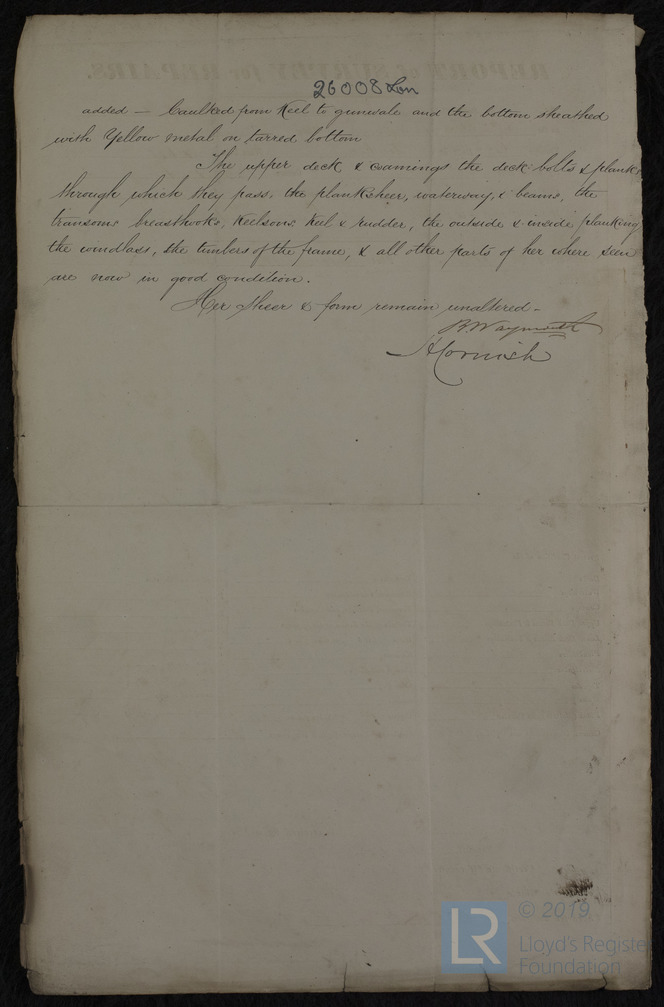 REPORT of SURVEY for REPAIRS.
26008 Lon
added — Caulked from Keel to gunwale and the bottom sheathed
with Yellow metal on tarred bottom
The upper deck & comings the deck bolts & plank
through which they pass, the planksheer, waterway, & beams, the
transoms breasthooks, Keelsons Keel & rudder, the outside & inside planking
the windlass, the timbers of the frame, & all other parts of her where seen
are now in good condition.
Her Sheer & form remain unaltered —
B Waymouth
A Cornish
LR
© 2019
Lloyd's Register
Foundation